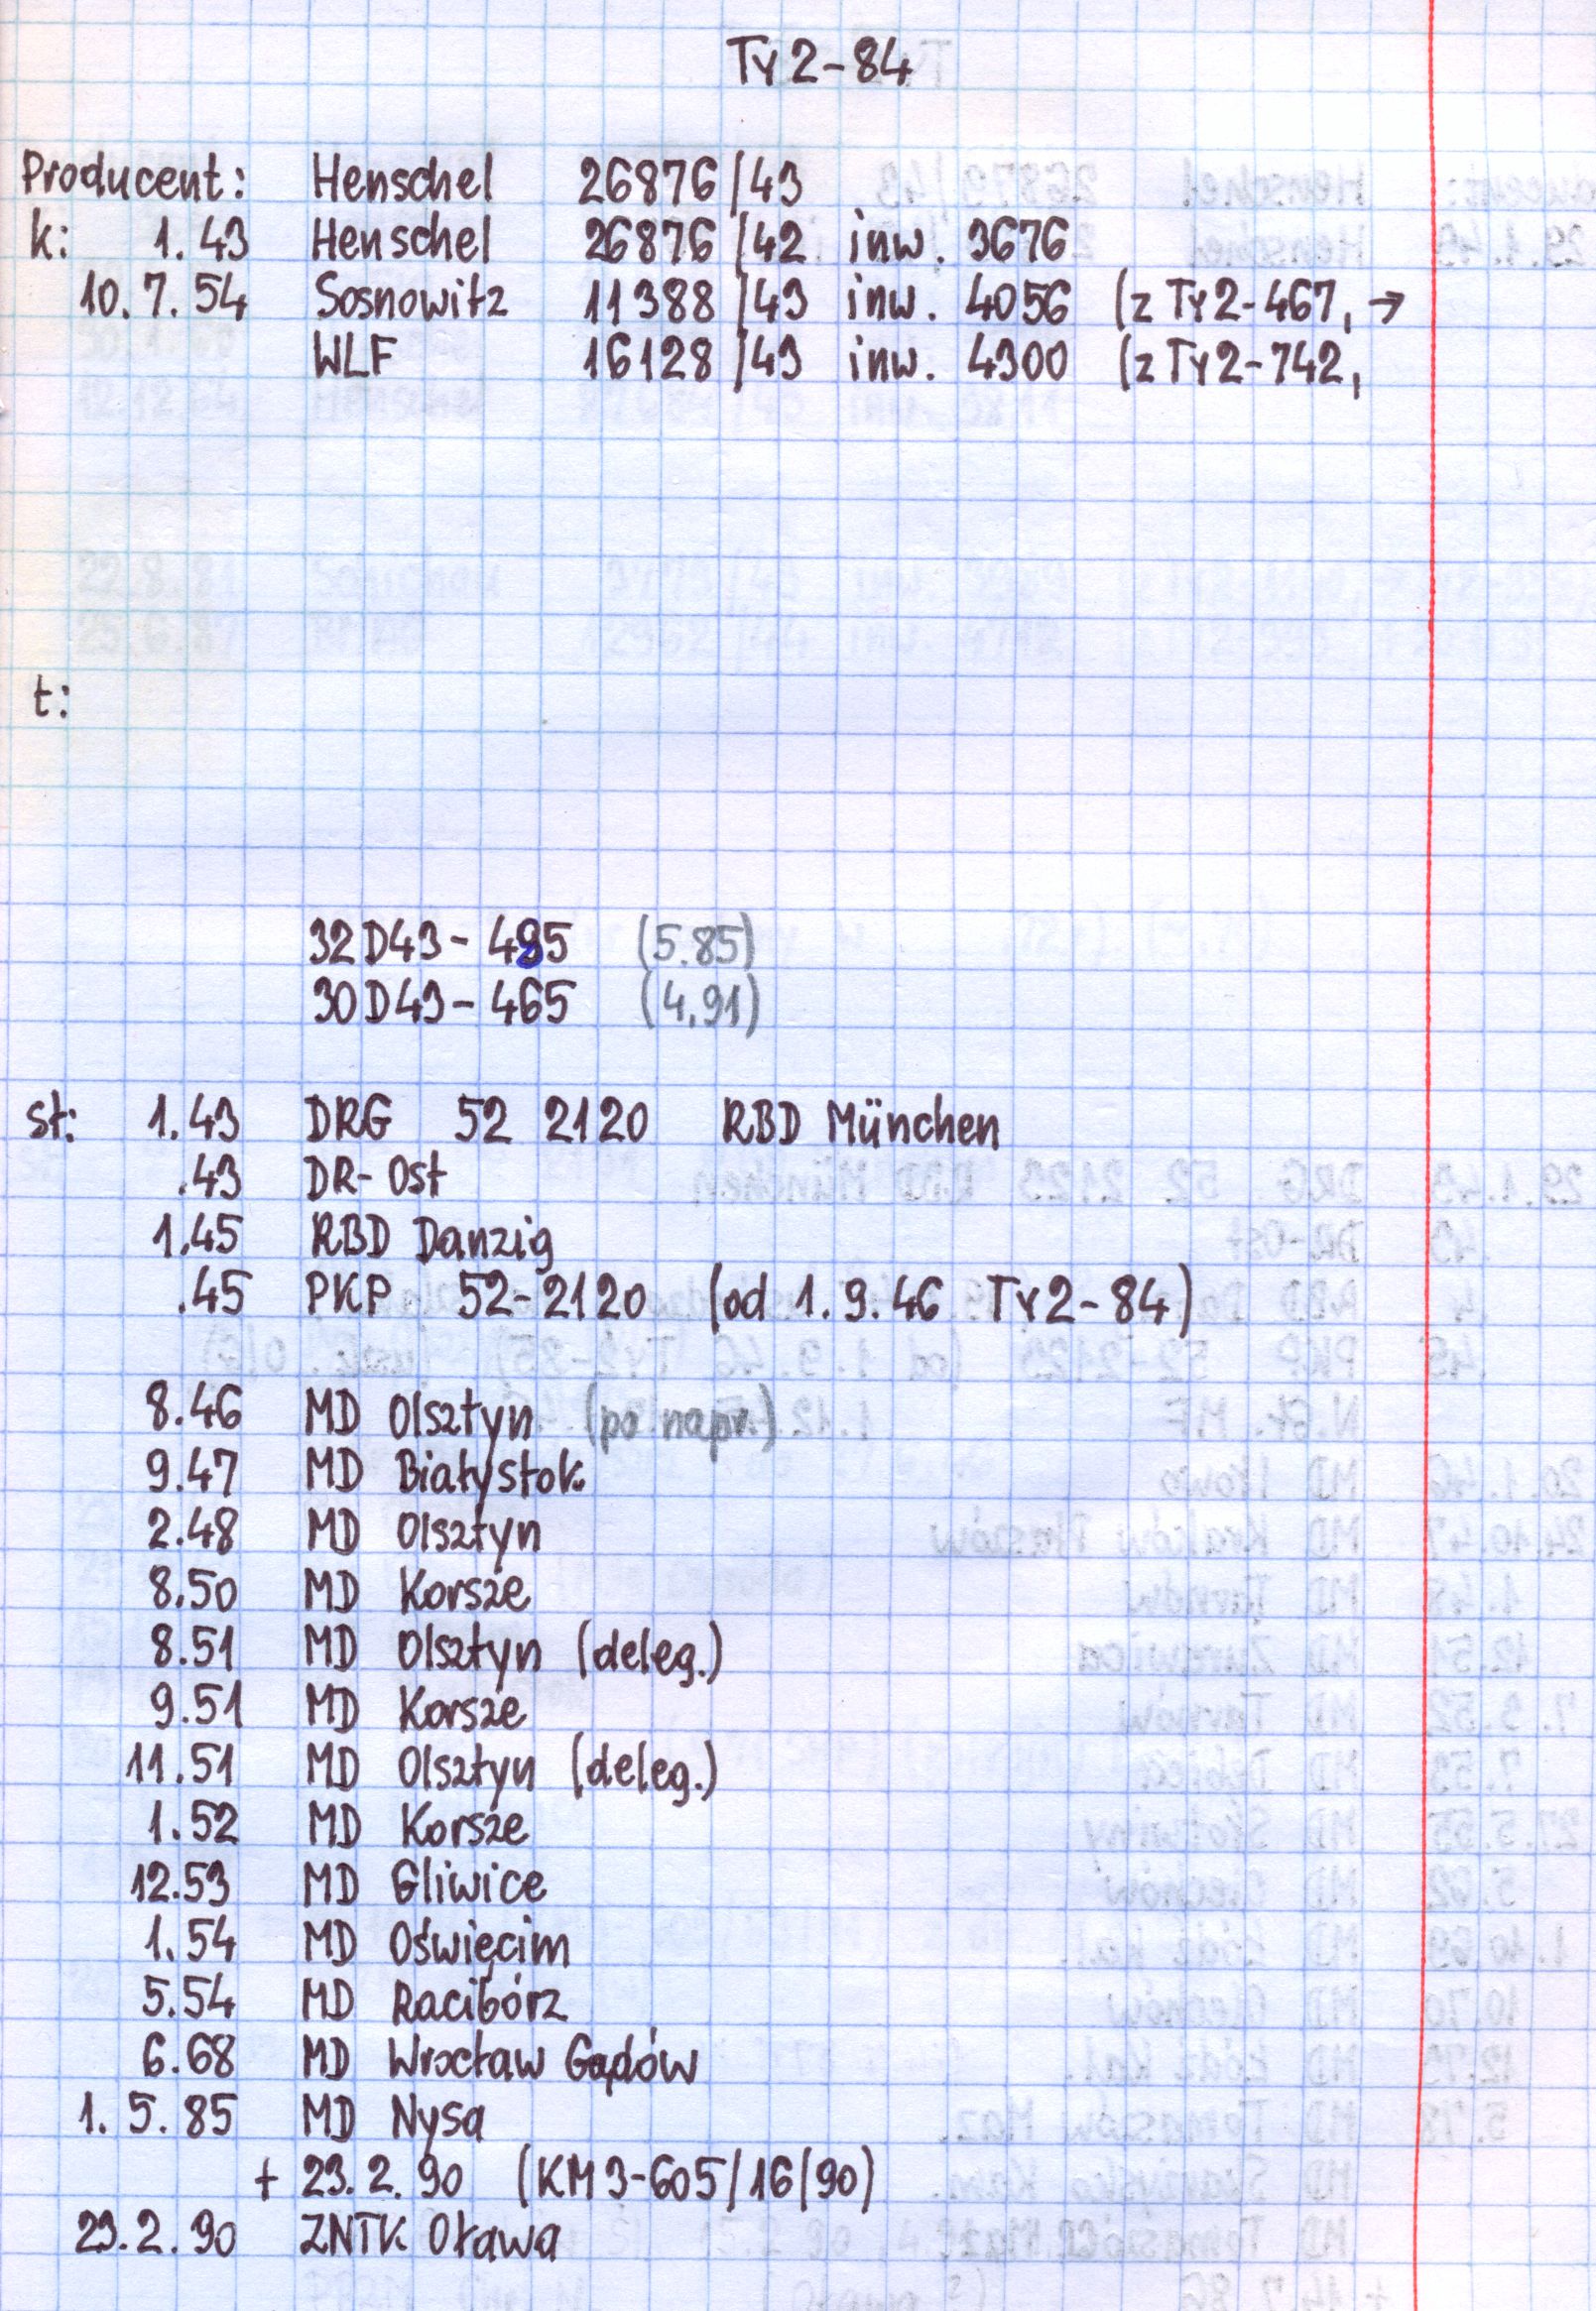 Ty2-84
Producent: Henschel 26876/43
k: 1.43 Henschel 26876/42 inw. 3676
10.7.54 Sosnowitz 11388/43 inw. 4056 (z Ty2-467, →
WLF 16128/43 inw. 4300 (z Ty2-742,
t:
32D43-495 (5.85)
30D43-465 (4.91)
st: 1.43 DRG 52 2120 RBD München
.43 DR-Ost
1.45 RBD Danzig
.45 PKP 52-2120 (od 1.9.46 Ty2-84)
8.46 MD Olsztyn (po napr.)
9.47 MD Białystok
2.48 MD Olsztyn
8.50 MD Korsze
8.51 MD Olsztyn (deleg.)
9.51 MD Korsze
11.51 MD Olsztyn (deleg.)
1.52 MD Korsze
12.53 MD Gliwice
1.54 MD Oświęcim
5.54 MD Racibórz
6.68 MD Wrocław Gądów
1.5.85 MD Nysa
+ 23.2.90 (KM3-605/16/90)
23.2.90 ZNTK Oława